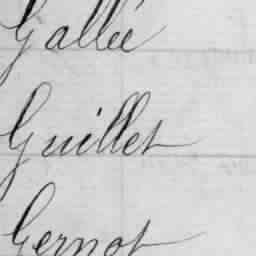 Gallée
Guillet
Gernot